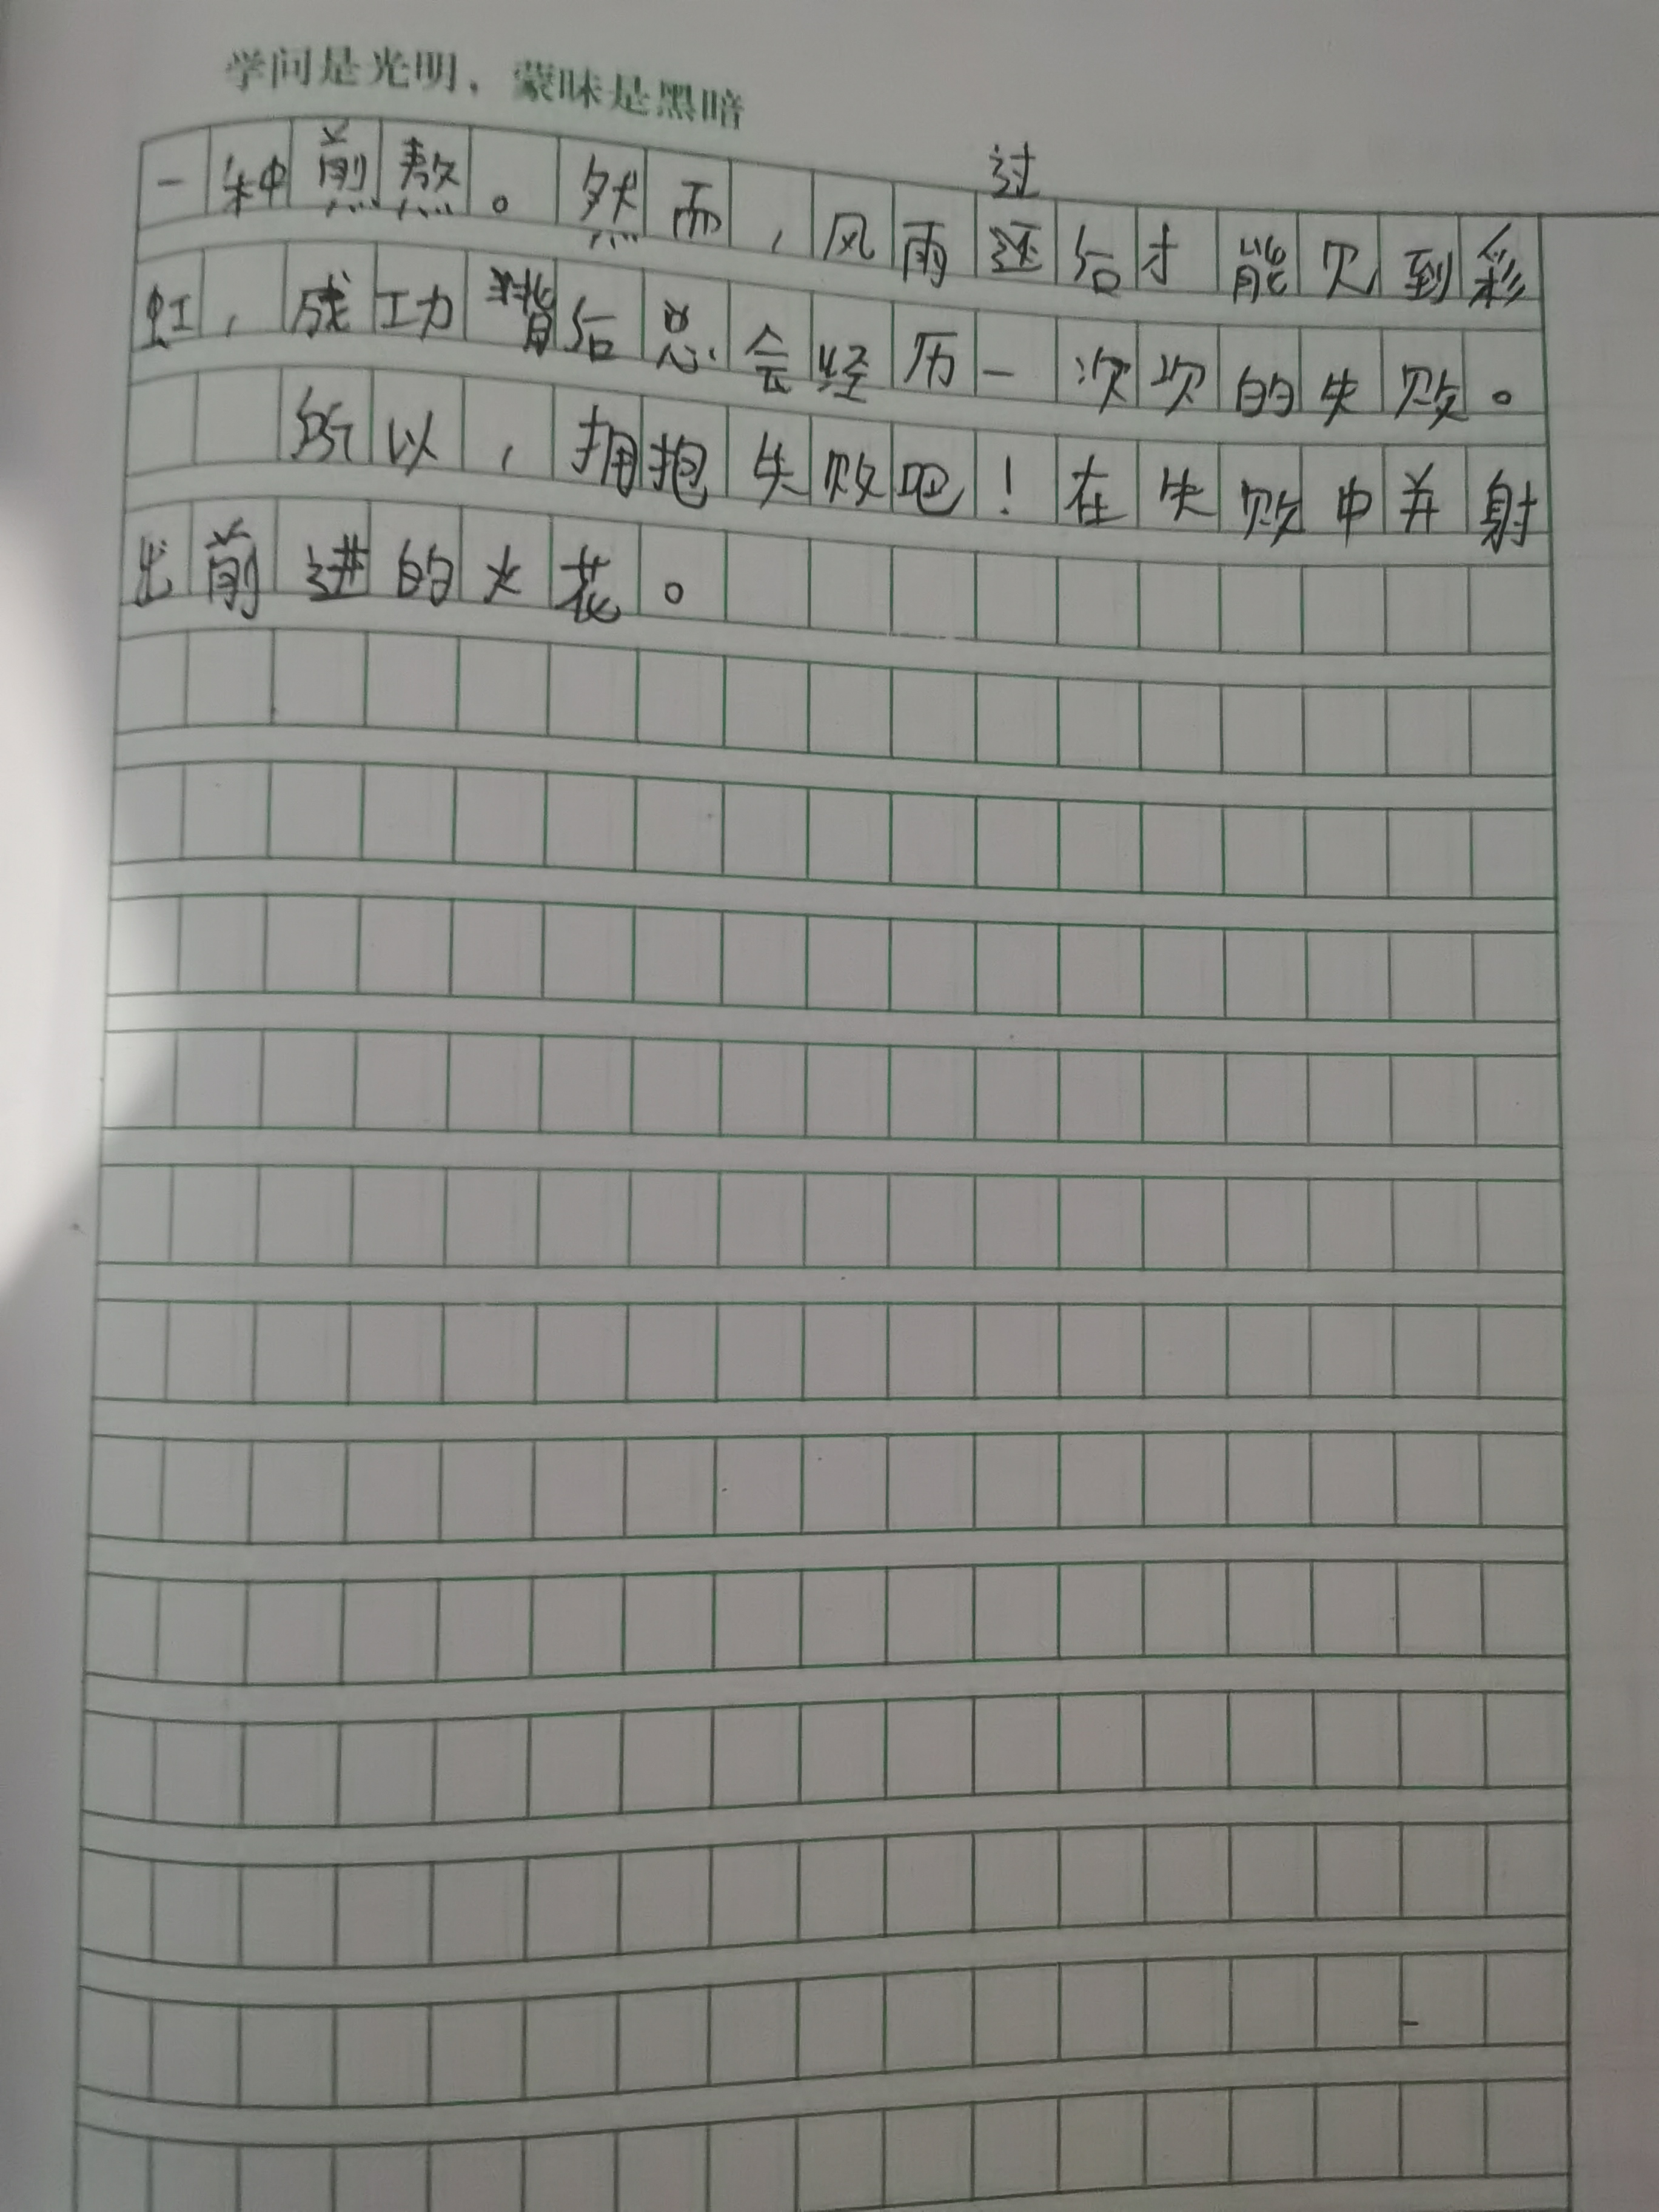 学问是光明，蒙昧是黑暗
过
一种煎熬。然而，风雨还后才能见到彩
虹，成功背后总会经历一次次的失败。
所以，拥抱失败吧！在失败中并射
出前进的火花。